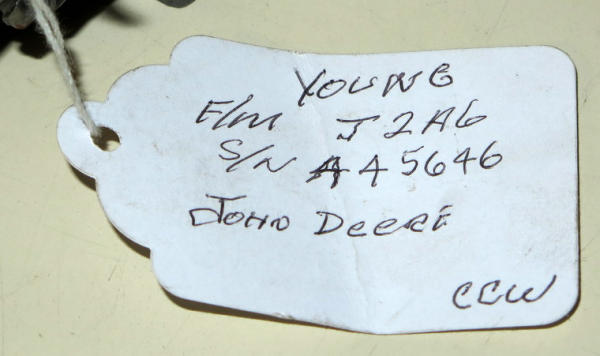 YOUNG
F/M J2A6
S/N A A5646
JOHN DEERE
CCW